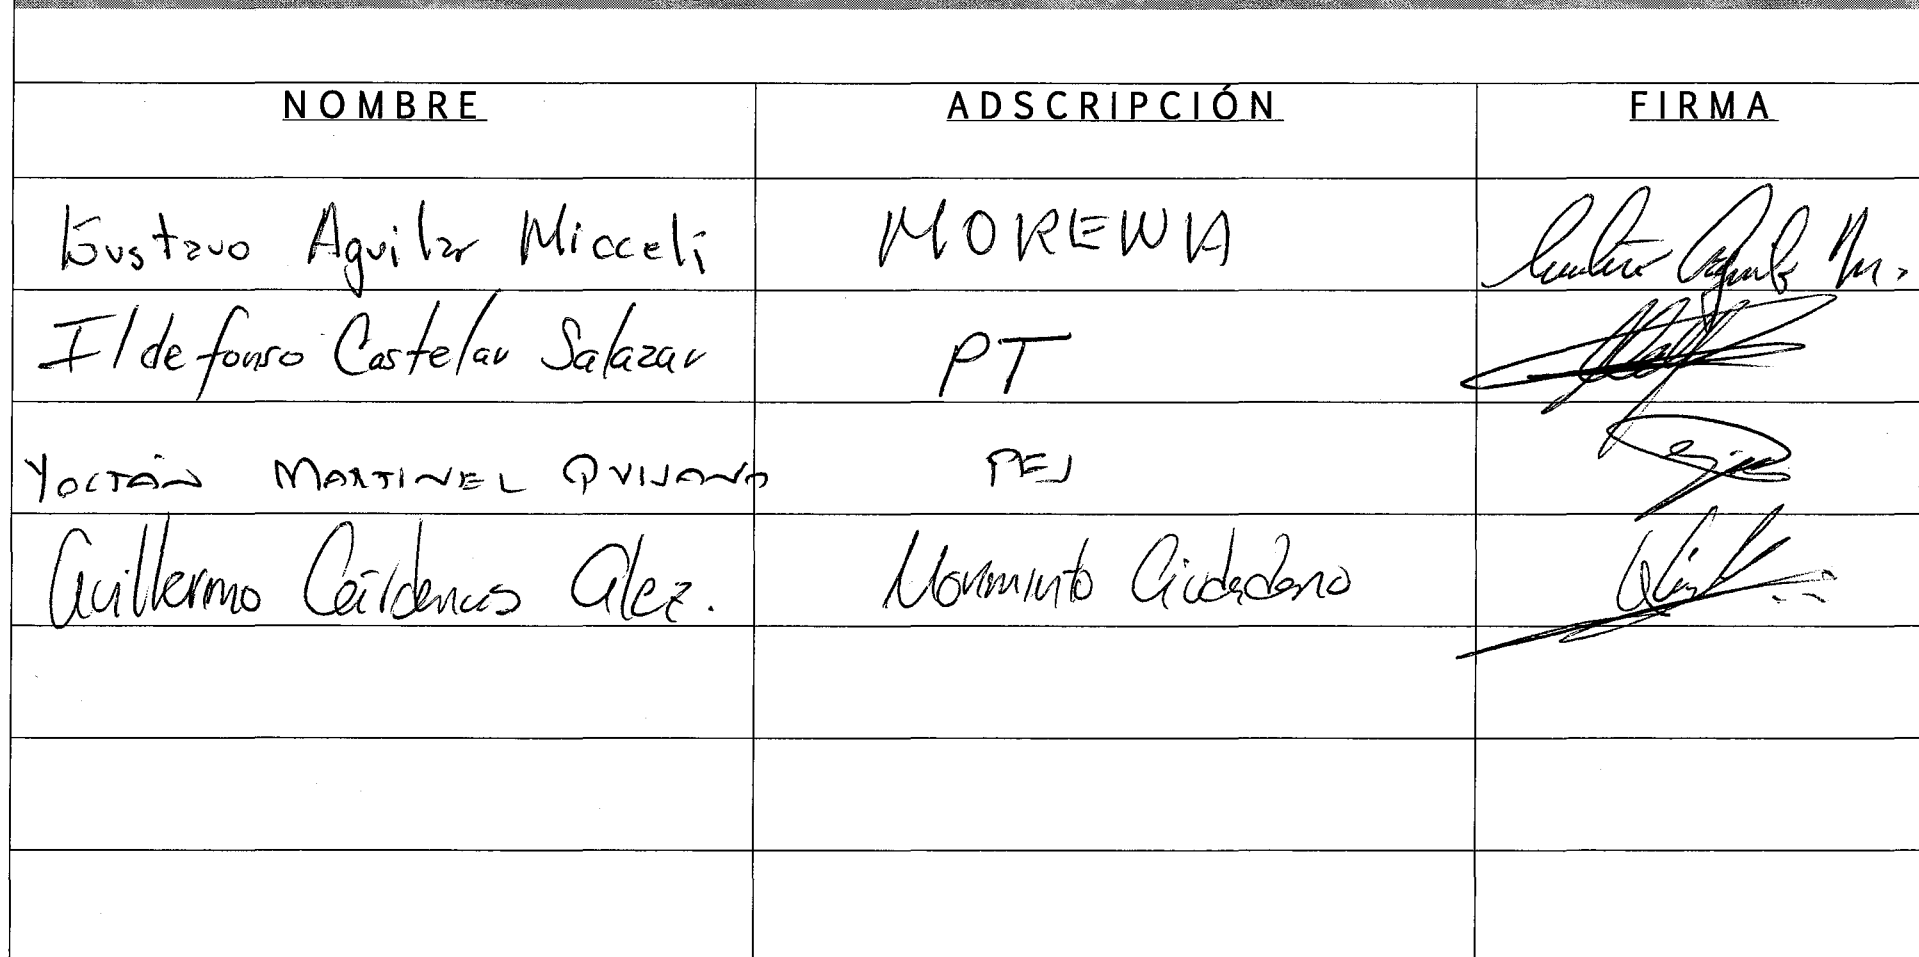 NOMBRE ADSCRIPCIÓN FIRMA
Gustavo Aguilar Micceli MORENA
Ildefonso Castelar Salazar PT
YOCTÁN MARTINEL QUIJANO
Guillermo Cárdenas Glez. Movimiento Ciudadano